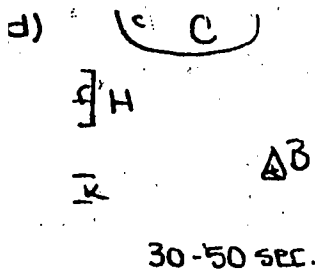 d)
c C
H
B
K
30-50 sec.